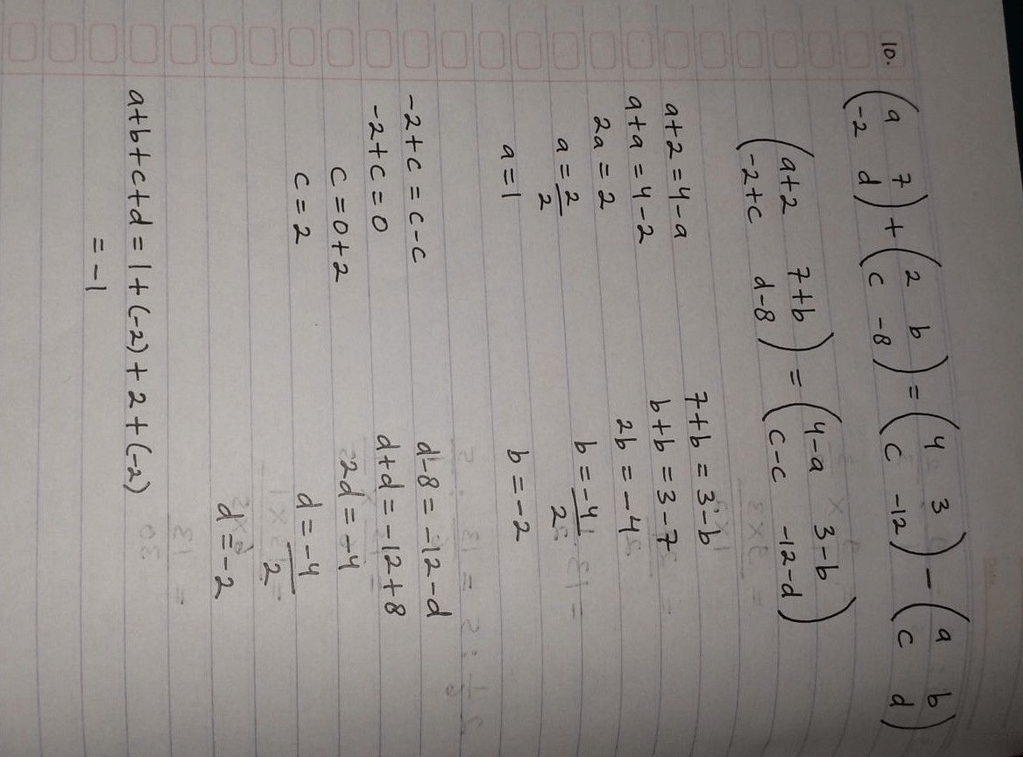 10.
(a 7) + (2 b) = (4 3) - (a b)
(-2 d) (c -8) (c -12) (c d)
(a+2 7+b) = (4-a 3-b)
(-2+c d-8) (c-c -12-d)
a+2 = 4-a
a+a = 4-2
2a = 2
a = 2/2
a = 1
7+b = 3-b
b+b = 3-7
2b = -4
b = -4/2
b = -2
-2+c = c-c
-2+c = 0
c = 0+2
c = 2
d-8 = -12-d
d+d = -12+8
2d = -4
d = -4/2
d = -2
a+b+c+d = 1+(-2)+2+(-2)
= -1